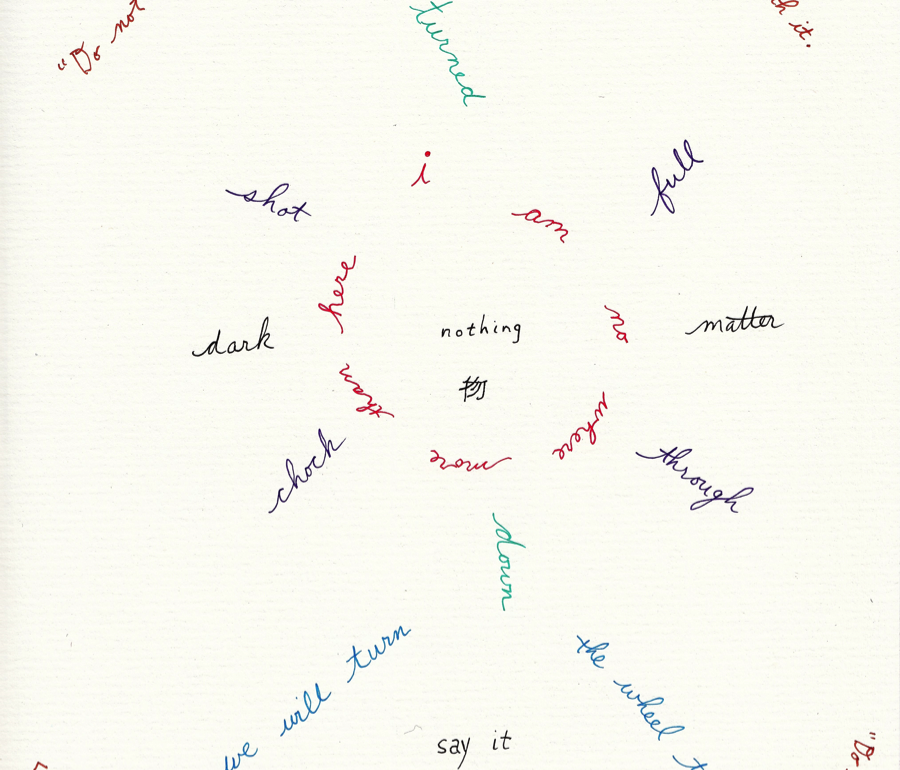 "Do not
turned
it.
i
am
no
where
more
than
here
shot
full
dark
nothing
matter
物
chock
through
down
we will turn
the wheel
say it
"Do